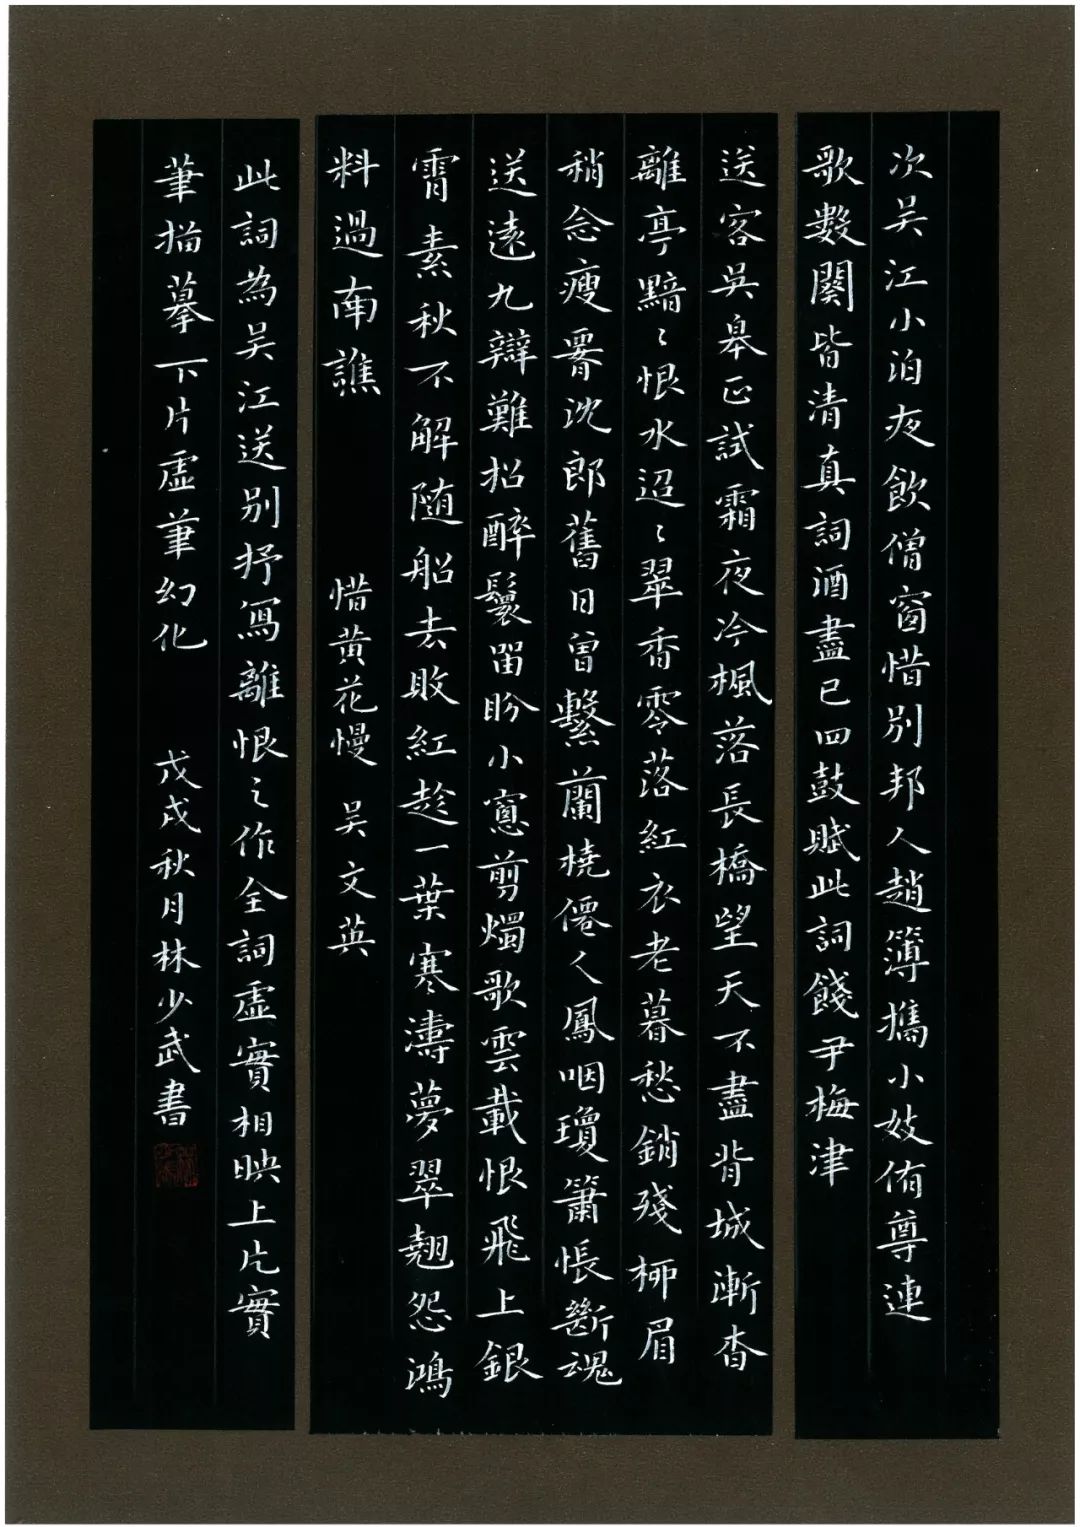 次吴江小泊夜飲僧窗惜别邦人趙簿攜小妓侑尊連
歌數闋皆清真詞酒盡已四鼓賦此詞餞尹梅津
送客吴皋正試霜夜冷楓落長橋望天不盡背城漸杳
離亭黯〻恨水迢〻翠香零落紅衣老暮愁銷殘柳眉
稍念瘦䁖沈郎舊日曾繫蘭橈僊人鳳咽瓊簫悵斷魂
送遠九辯難招醉鬟留盼小窻剪燭歌雲載恨飛上銀
霄素秋不解随船去敗紅趁一葉寒濤夢翠翹怨鴻
料過南譙　惜黄花慢　吴文英
此詞為吴江送别抒寫離恨之作全詞虚實相映上片實
筆描摹下片虚筆幻化　戊戌秋月林少武書